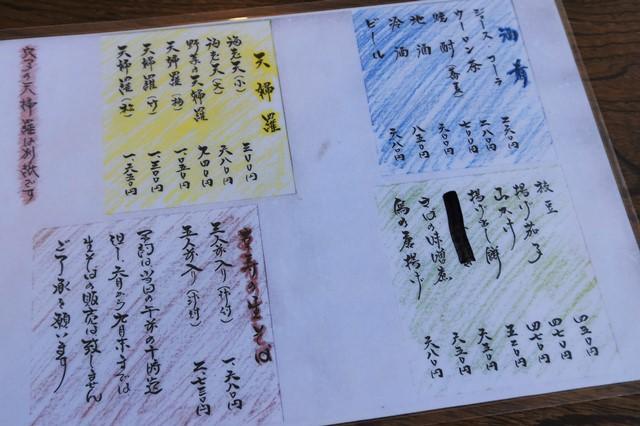 酒肴
ジュース コーラ 二六〇円
ウーロン茶 二八〇円
焼酎（蕎麦） 七〇〇円
地酒 八五〇円
冷酒
ビール 六八〇円
枝豆 四五〇円
揚げ茄子 四七〇円
山かけ 四七〇円
揚げ出し餅 五二〇円
さばの味噌煮 六五〇円
鳥の唐揚げ 六八〇円
天婦羅
海老天（小） 三〇〇円
海老天（大） 六八〇円
野菜の天婦羅 六四〇円
天婦羅（梅） 一、〇五〇円
天婦羅（竹） 一、三〇〇円
天婦羅（松） 一、六五〇円
穴子の天婦羅は別紙です
生そば
三人前入り（汁付） 一、六八〇円
五人前入り（汁付） 二、七三〇円
予約は当日の午前の十時迄
但し、六月から九月末までは
生そばの販売は致しません
ご了承を願います